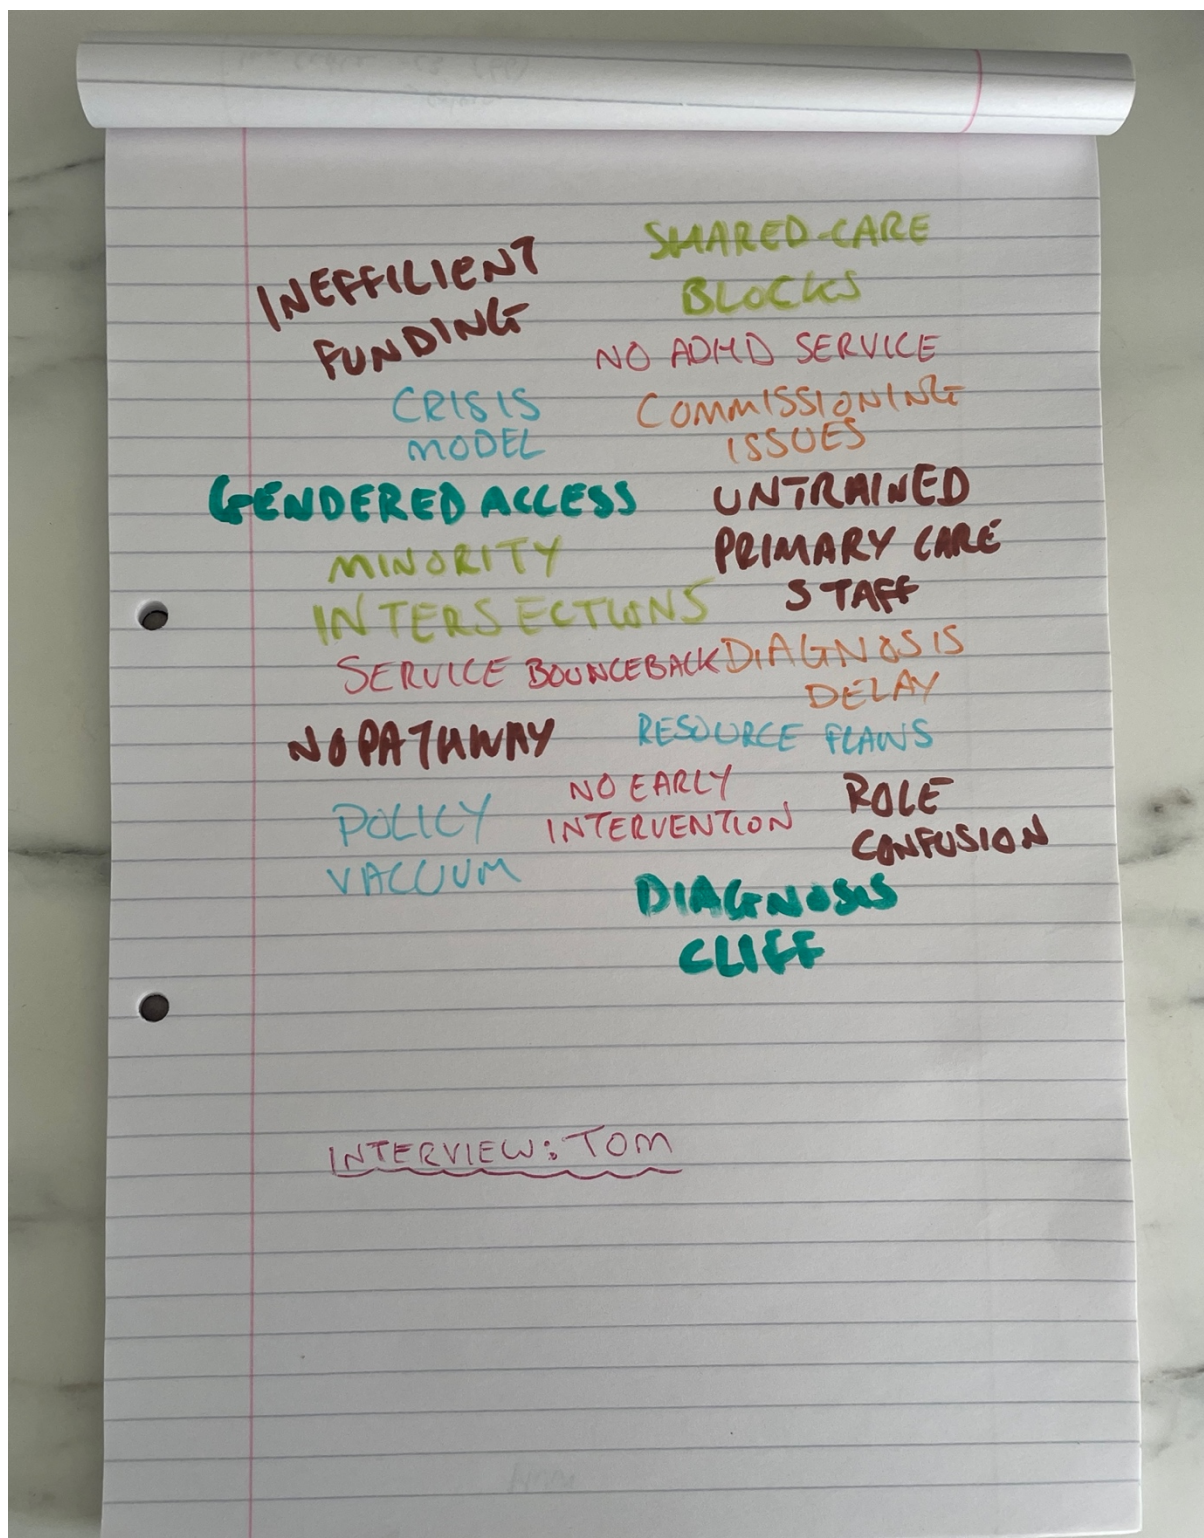 INEFFICIENT
FUNDING
SHARED-CARE
BLOCKS
NO ADHD SERVICE
CRISIS
MODEL
COMMISSIONING
ISSUES
GENDERED ACCESS
UNTRAINED
PRIMARY CARE
STAFF
MINORITY
INTERSECTIONS
SERVICE BOUNCEBACK
DIAGNOSIS
DELAY
NO PATHWAY
RESOURCE FLAWS
NO EARLY
INTERVENTION
ROLE
CONFUSION
POLICY
VACUUM
DIAGNOSIS
CLIFF
INTERVIEW: TOM